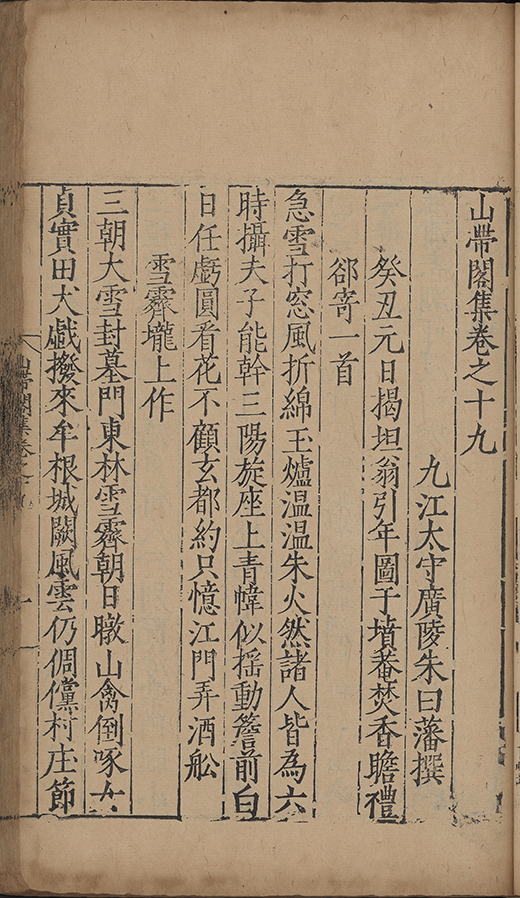 山帶閣集卷之十九
九江太守廣陵朱曰藩撰
癸丑元日揭坦翁引年圖于墳菴焚香瞻禮
郤寄一首
急雪打窓風折綿玉爐温温朱火然諸人皆為六
時攝夫子能幹三陽旋座上青幃似揺動簷前白
日任虧圓看花不顧玄都約只憶江門弄酒舩
雪霽壠上作
三朝大雪封墓門東林雪霽朝日暾山禽倒啄女
貞實田犬戯撥來牟根城闕風雲仍倜儻村庄節
山帶閣集卷之十九
一